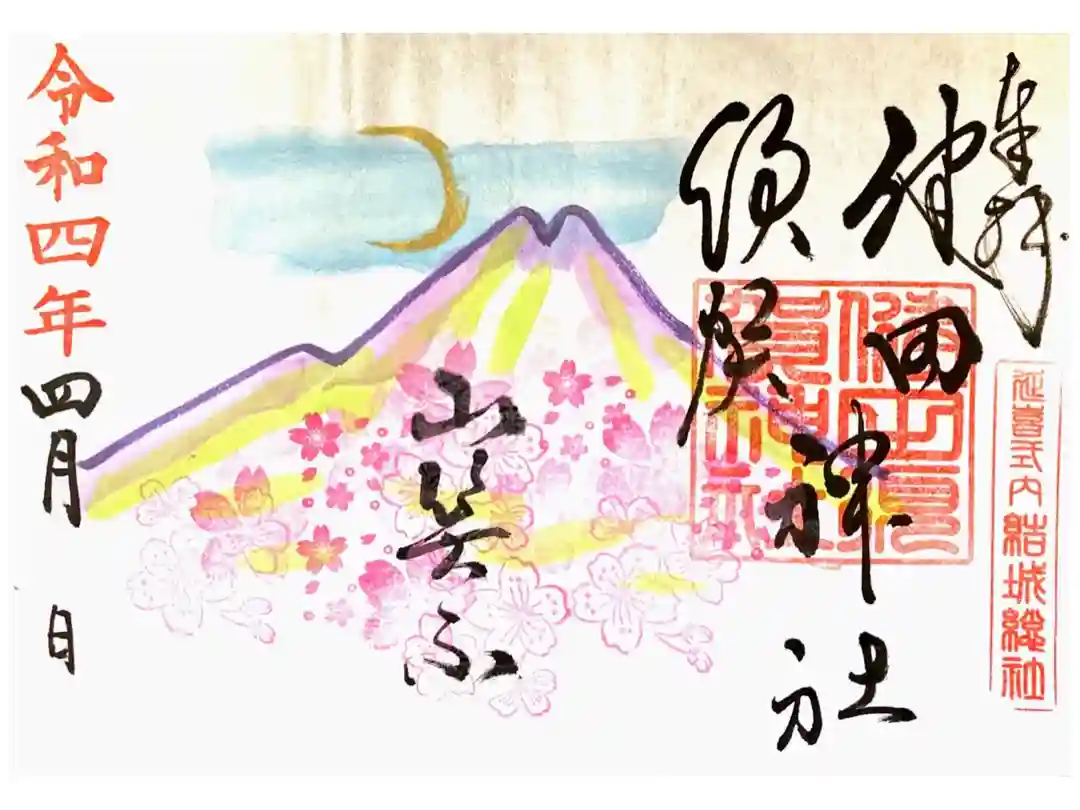 奉拝
延喜式内 結城総社
健田
須賀
神社
健田須
賀神社
山笑ふ
令和四年四月 日